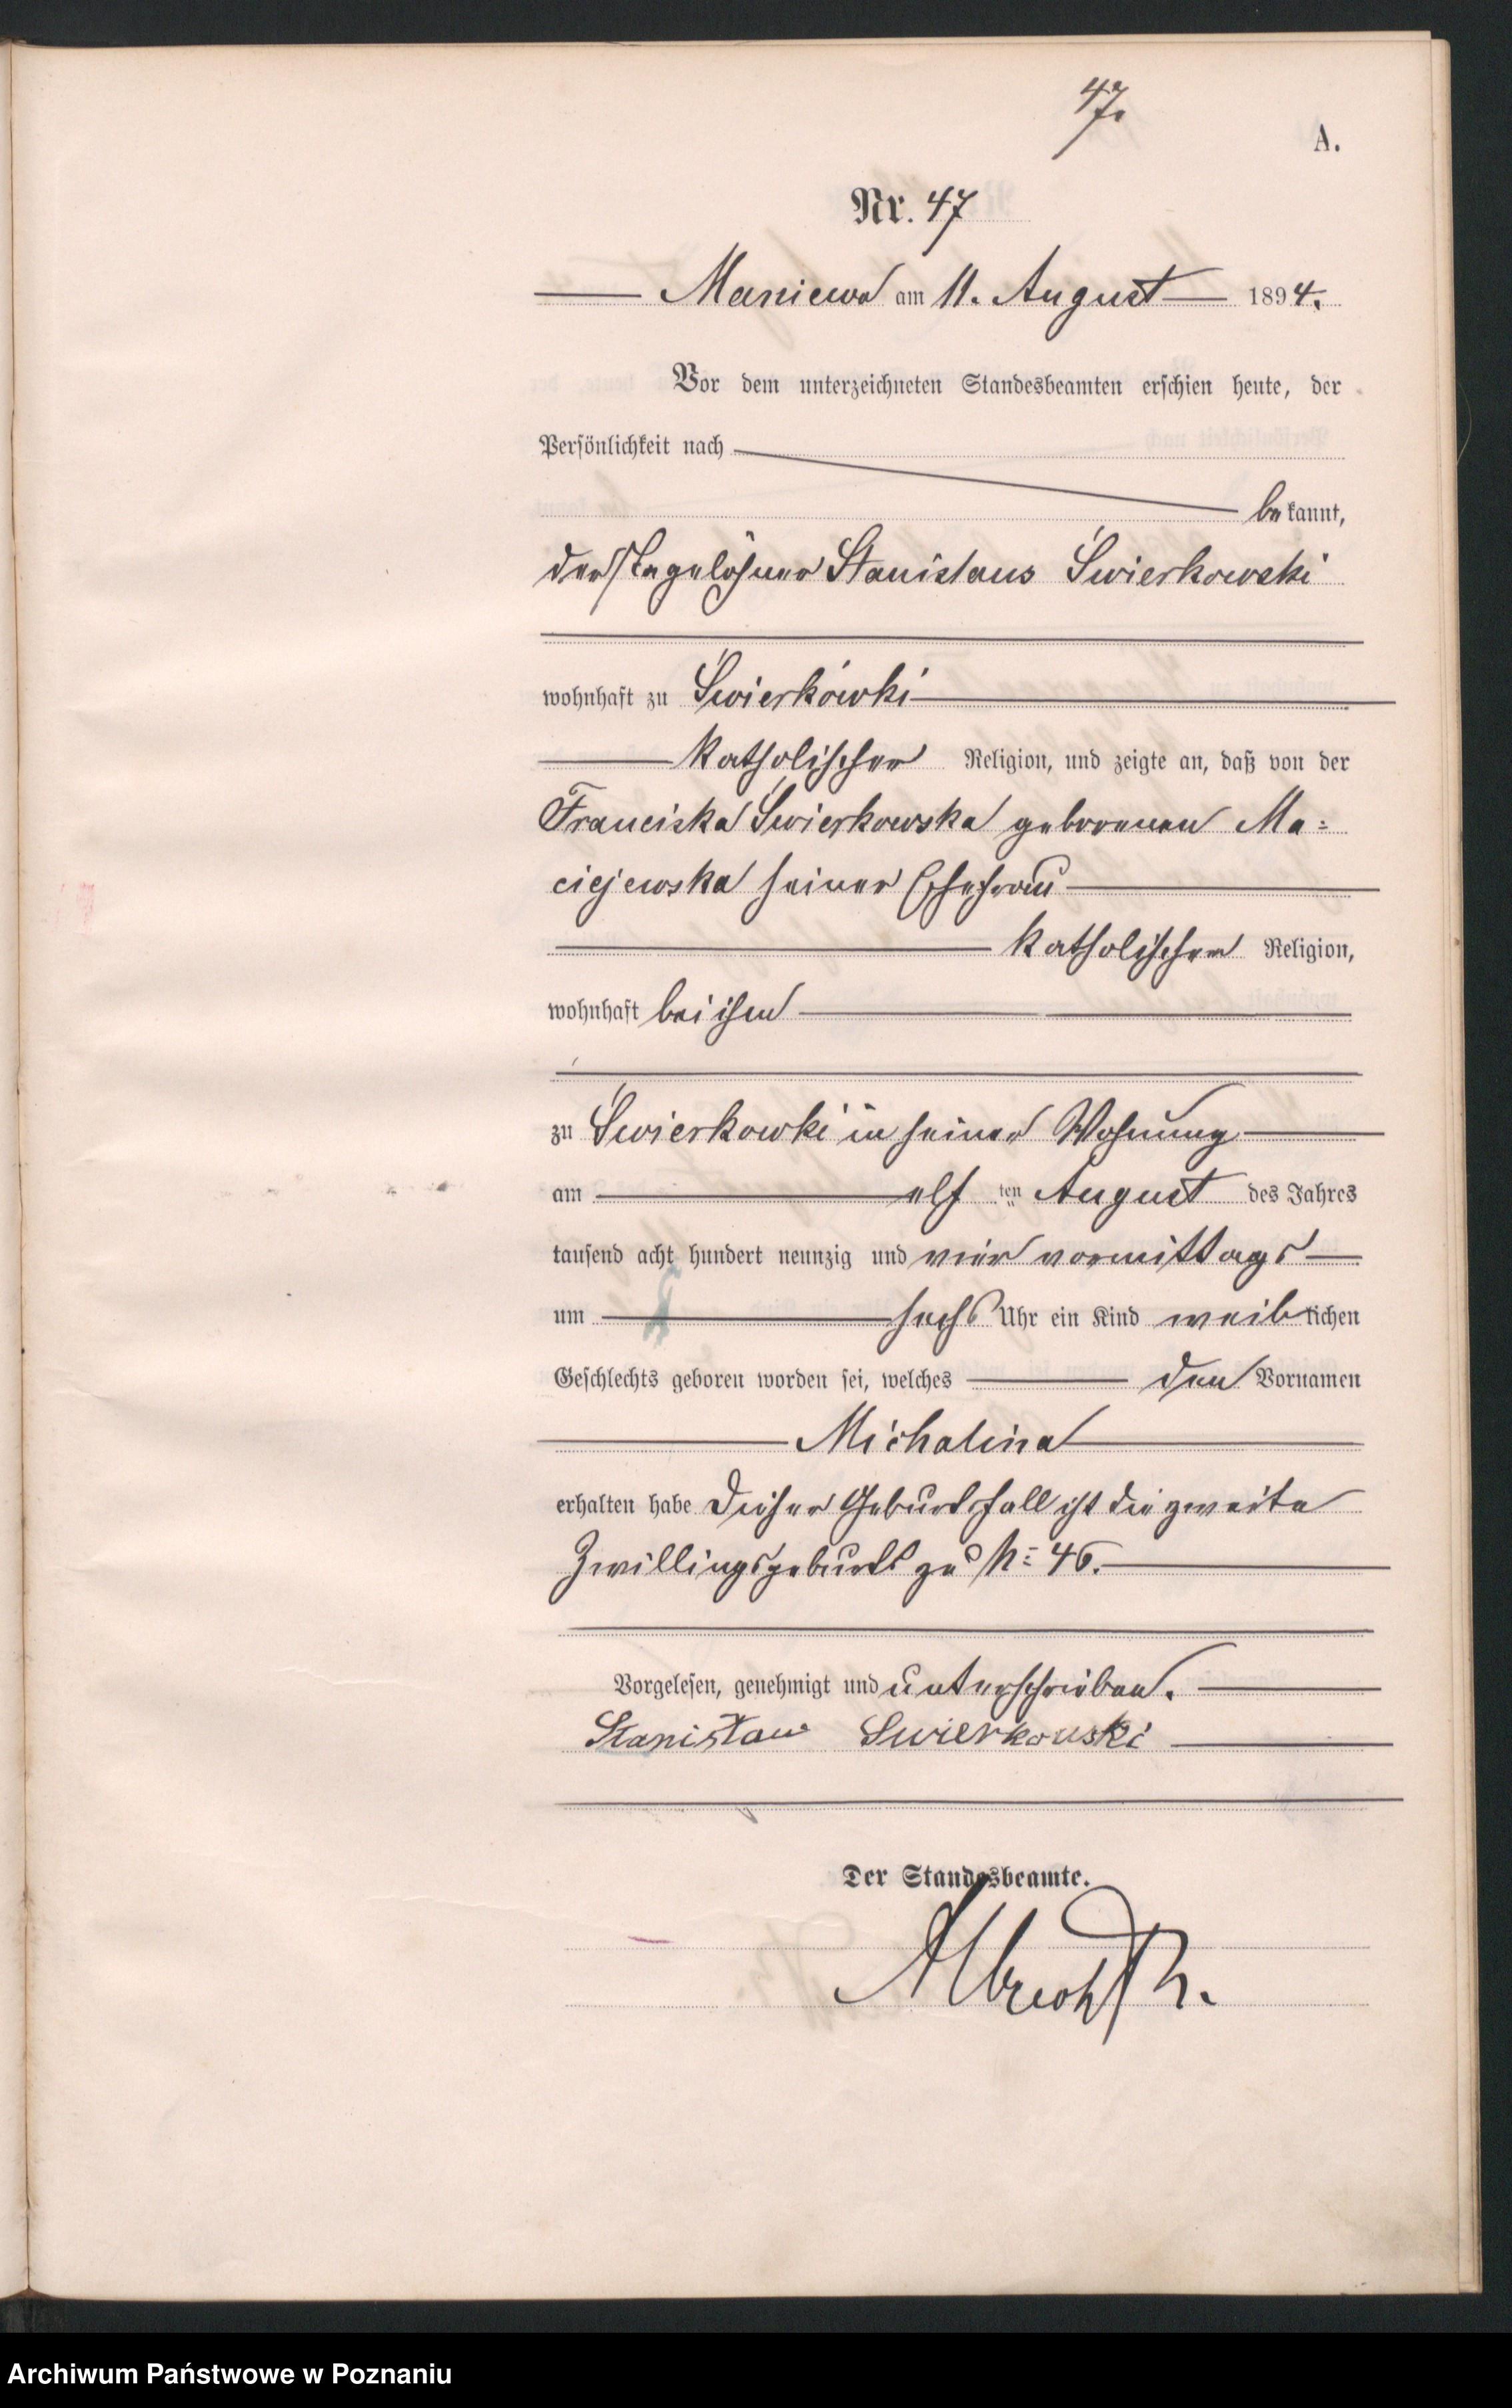 47.
A.
Nr. 47
Maniewo am 11. August 1894.
Vor dem unterzeichneten Standesbeamten erschien heute, der
Persönlichkeit nach
bekannt,
der Tagelöhner Stanislaus Świerkowski
wohnhaft zu Świerkówki
katholischer Religion, und zeigte an, daß von der
Franciska Świerkowska geborenen Ma=
ciejewska seiner Ehefrau
katholischer Religion,
wohnhaft bei ihm
zu Świerkowki in seiner Wohnung
am elf ten August des Jahres
tausend acht hundert neunzig und vier vormittags
um sechs Uhr ein Kind weiblichen
Geschlechts geboren worden sei, welches den Vornamen
Michalina
erhalten habe Dieser Geburtsfall ist die zweite
Zwillingsgeburt zu N: 46.
Vorgelesen, genehmigt und unterschrieben.
Stanisław Swierkowski
Der Standesbeamte.
Albrecht
Archiwum Państwowe w Poznaniu